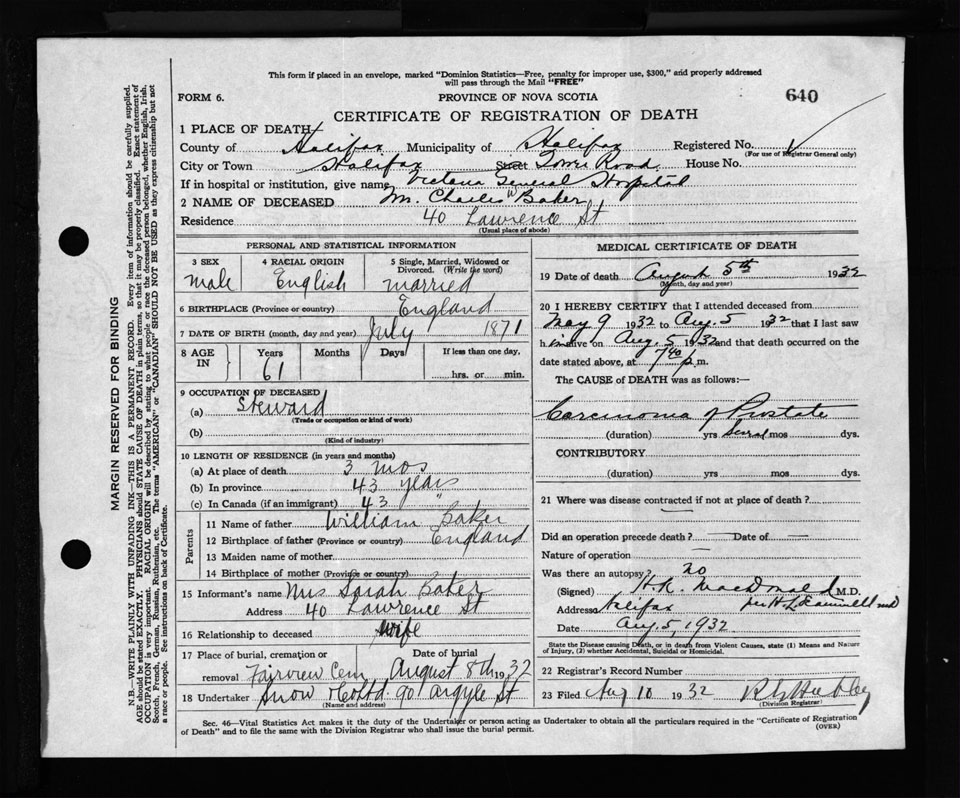 This form if placed in an envelope, marked "Dominion Statistics—Free, penalty for improper use, $300," and properly addressed
will pass through the Mail "FREE"
FORM 6. PROVINCE OF NOVA SCOTIA 640
CERTIFICATE OF REGISTRATION OF DEATH
1 PLACE OF DEATH
County of Halifax Municipality of Halifax Registered No.
(For use of Registrar General only)
City or Town Halifax Street Tower Road House No.
If in hospital or institution, give name Victoria General Hospital
2 NAME OF DECEASED Mr. Charles W Baker
Residence 40 Lawrence St
(Usual place of abode)
PERSONAL AND STATISTICAL INFORMATION
3 SEX 4 RACIAL ORIGIN 5 Single, Married, Widowed or
Divorced. (Write the word)
male English married
6 BIRTHPLACE (Province or country) England
7 DATE OF BIRTH (month, day and year) July 1871
8 AGE IN Years Months Days If less than one day,
61 hrs. or min.
9 OCCUPATION OF DECEASED
(a) Steward
(Trade or occupation or kind of work)
(b)
(Kind of industry)
10 LENGTH OF RESIDENCE (in years and months)
(a) At place of death 3 mos
(b) In province 43 years
(c) In Canada (if an immigrant) 43 "
Parents
11 Name of father William Baker
12 Birthplace of father (Province or country) England
13 Maiden name of mother
14 Birthplace of mother (Province or country)
15 Informant's name Mrs Sarah Baker
Address 40 Lawrence St
16 Relationship to deceased wife
17 Place of burial, cremation or Date of burial
removal Fairview Cem August 8th 1932
18 Undertaker Snow & Co Ltd. 90 Argyle St
(Name and address)
MEDICAL CERTIFICATE OF DEATH
19 Date of death August 5th 1932
(Month, day and year)
20 I HEREBY CERTIFY that I attended deceased from
May 9 1932 to Aug. 5 1932 that I last saw
him alive on Aug. 5 1932 and that death occurred on the
date stated above, at 7 40 p.m.
The CAUSE of DEATH was as follows:—
Carcinoma of Prostate
(duration) yrs several mos dys.
CONTRIBUTORY
(duration) yrs mos dys.
21 Where was disease contracted if not at place of death? —
Did an operation precede death? — Date of —
Nature of operation —
Was there an autopsy? no
(Signed) H.K. MacDonald M.D.
Address Halifax per H L md
Date Aug. 5, 1932
State the Disease causing Death, or in death from Violent Causes, state (1) Means and Nature
of Injury, (2) whether Accidental, Suicidal or Homicidal.
22 Registrar's Record Number
23 Filed Aug 10 1932
(Division Registrar)
Sec. 46—Vital Statistics Act makes it the duty of the Undertaker or person acting as Undertaker to obtain all the particulars required in the "Certificate of Registration
of Death" and to file the same with the Division Registrar who shall issue the burial permit. (OVER)
MARGIN RESERVED FOR BINDING
N.B.—WRITE PLAINLY WITH UNFADING INK—THIS IS A PERMANENT RECORD. Every item of information should be carefully supplied.
AGE should be stated EXACTLY. PHYSICIANS should STATE CAUSE OF DEATH in plain terms, so that it may be properly classified. Exact statement of
OCCUPATION is very important. RACIAL ORIGIN will be described by stating to what people or race the deceased person belonged, whether English, Irish,
Scotch, French, German, Russian, Ruthenian, etc. The terms "AMERICAN" or "CANADIAN" SHOULD NOT BE USED as they express citizenship but not
a race or people. See instructions on back of Certificate.